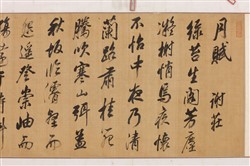 月賦 謝莊
綠苔生閣芳塵
凝榭悄焉疚懷
不怡中夜乃清
蘭路肅桂苑
騰吹寒山弭蓋
秋坂臨濬壑而
怨遙登崇岫而
傷遠于時斜